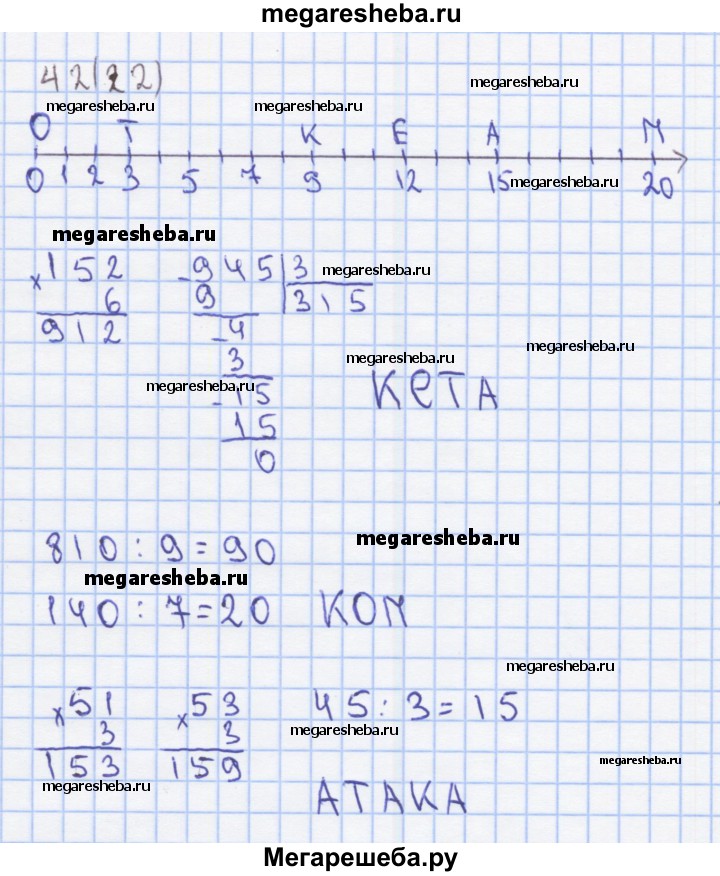 megaresheba.ru
42(22)
megaresheba.ru
megaresheba.ru megaresheba.ru
О Т К Е А М
0 1 2 3 5 7 9 12 15 20
megaresheba.ru
megaresheba.ru
×152 -945|3
megaresheba.ru
6 9 315
912 -4
megaresheba.ru
3
megaresheba.ru
megaresheba.ru
-15 КЕТА
15
0
810:9=90
megaresheba.ru
megaresheba.ru
140:7=20 КОМ
megaresheba.ru
×51 ×53 45:3=15
3 3
megaresheba.ru
153 159
megaresheba.ru
megaresheba.ru
АТАКА
Мегарешеба.ру